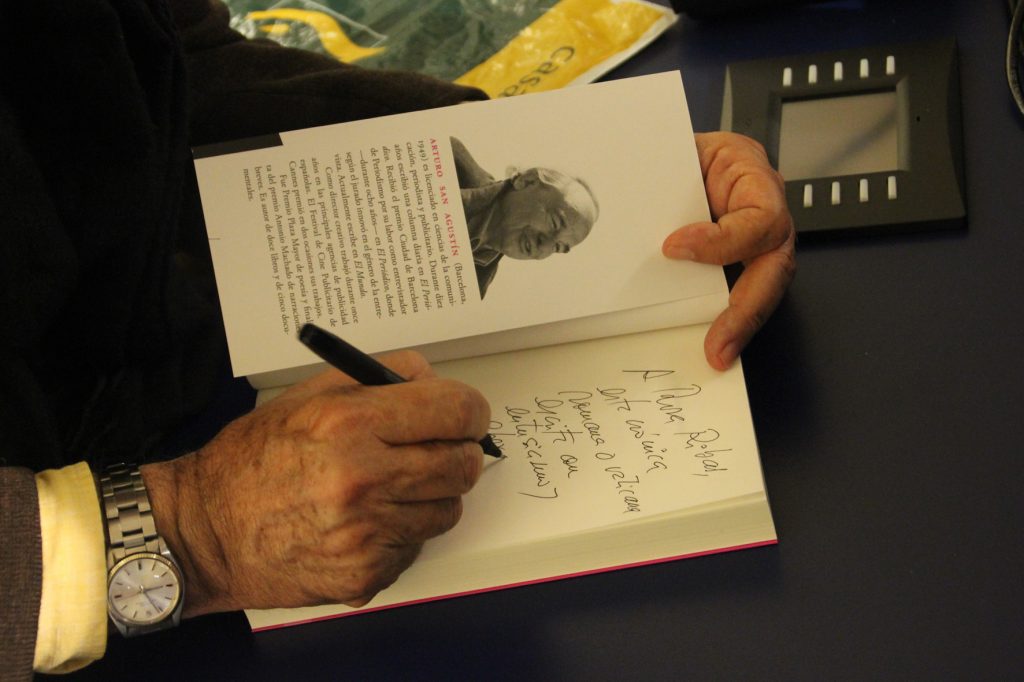 casa
ARTURO SAN AGUSTÍN (Barcelona,
1949) es licenciado en ciencias de la comuni-
cación, periodista y publicitario. Durante diez
años escribió una columna diaria en El Perió-
dico. Recibió el premio Ciudad de Barcelona
de Periodismo por su labor como entrevistador
—durante ocho años— en El Periódico, donde
según el jurado innovó en el género de la entre-
vista. Actualmente escribe en El Mundo.
Como director creativo trabajó durante once
años en las principales agencias de publicidad
españolas. El Festival de Cine Publicitario de
Cannes premió en dos ocasiones sus trabajos.
Fue Premio Plaza Mayor de poesía y final
ta del premio Antonio Machado de narracione
breves. Es autor de doce libros y de cinco docu-
mentales.
A
esta crónica
romana o vaticana
escrita con
entusiasmo y